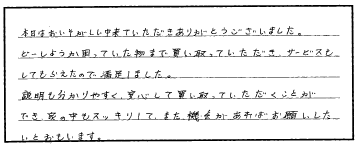 本日はおいそがしい中来ていただきありがとうございました。
どーしようか困っていた物まで買い取っていただき、サービスも
してもらえたので満足しました。
説明も分かりやすく、安心して買い取っていただくことが
でき、家の中もスッキリして、また機会があればお願いした
いとおもいます。